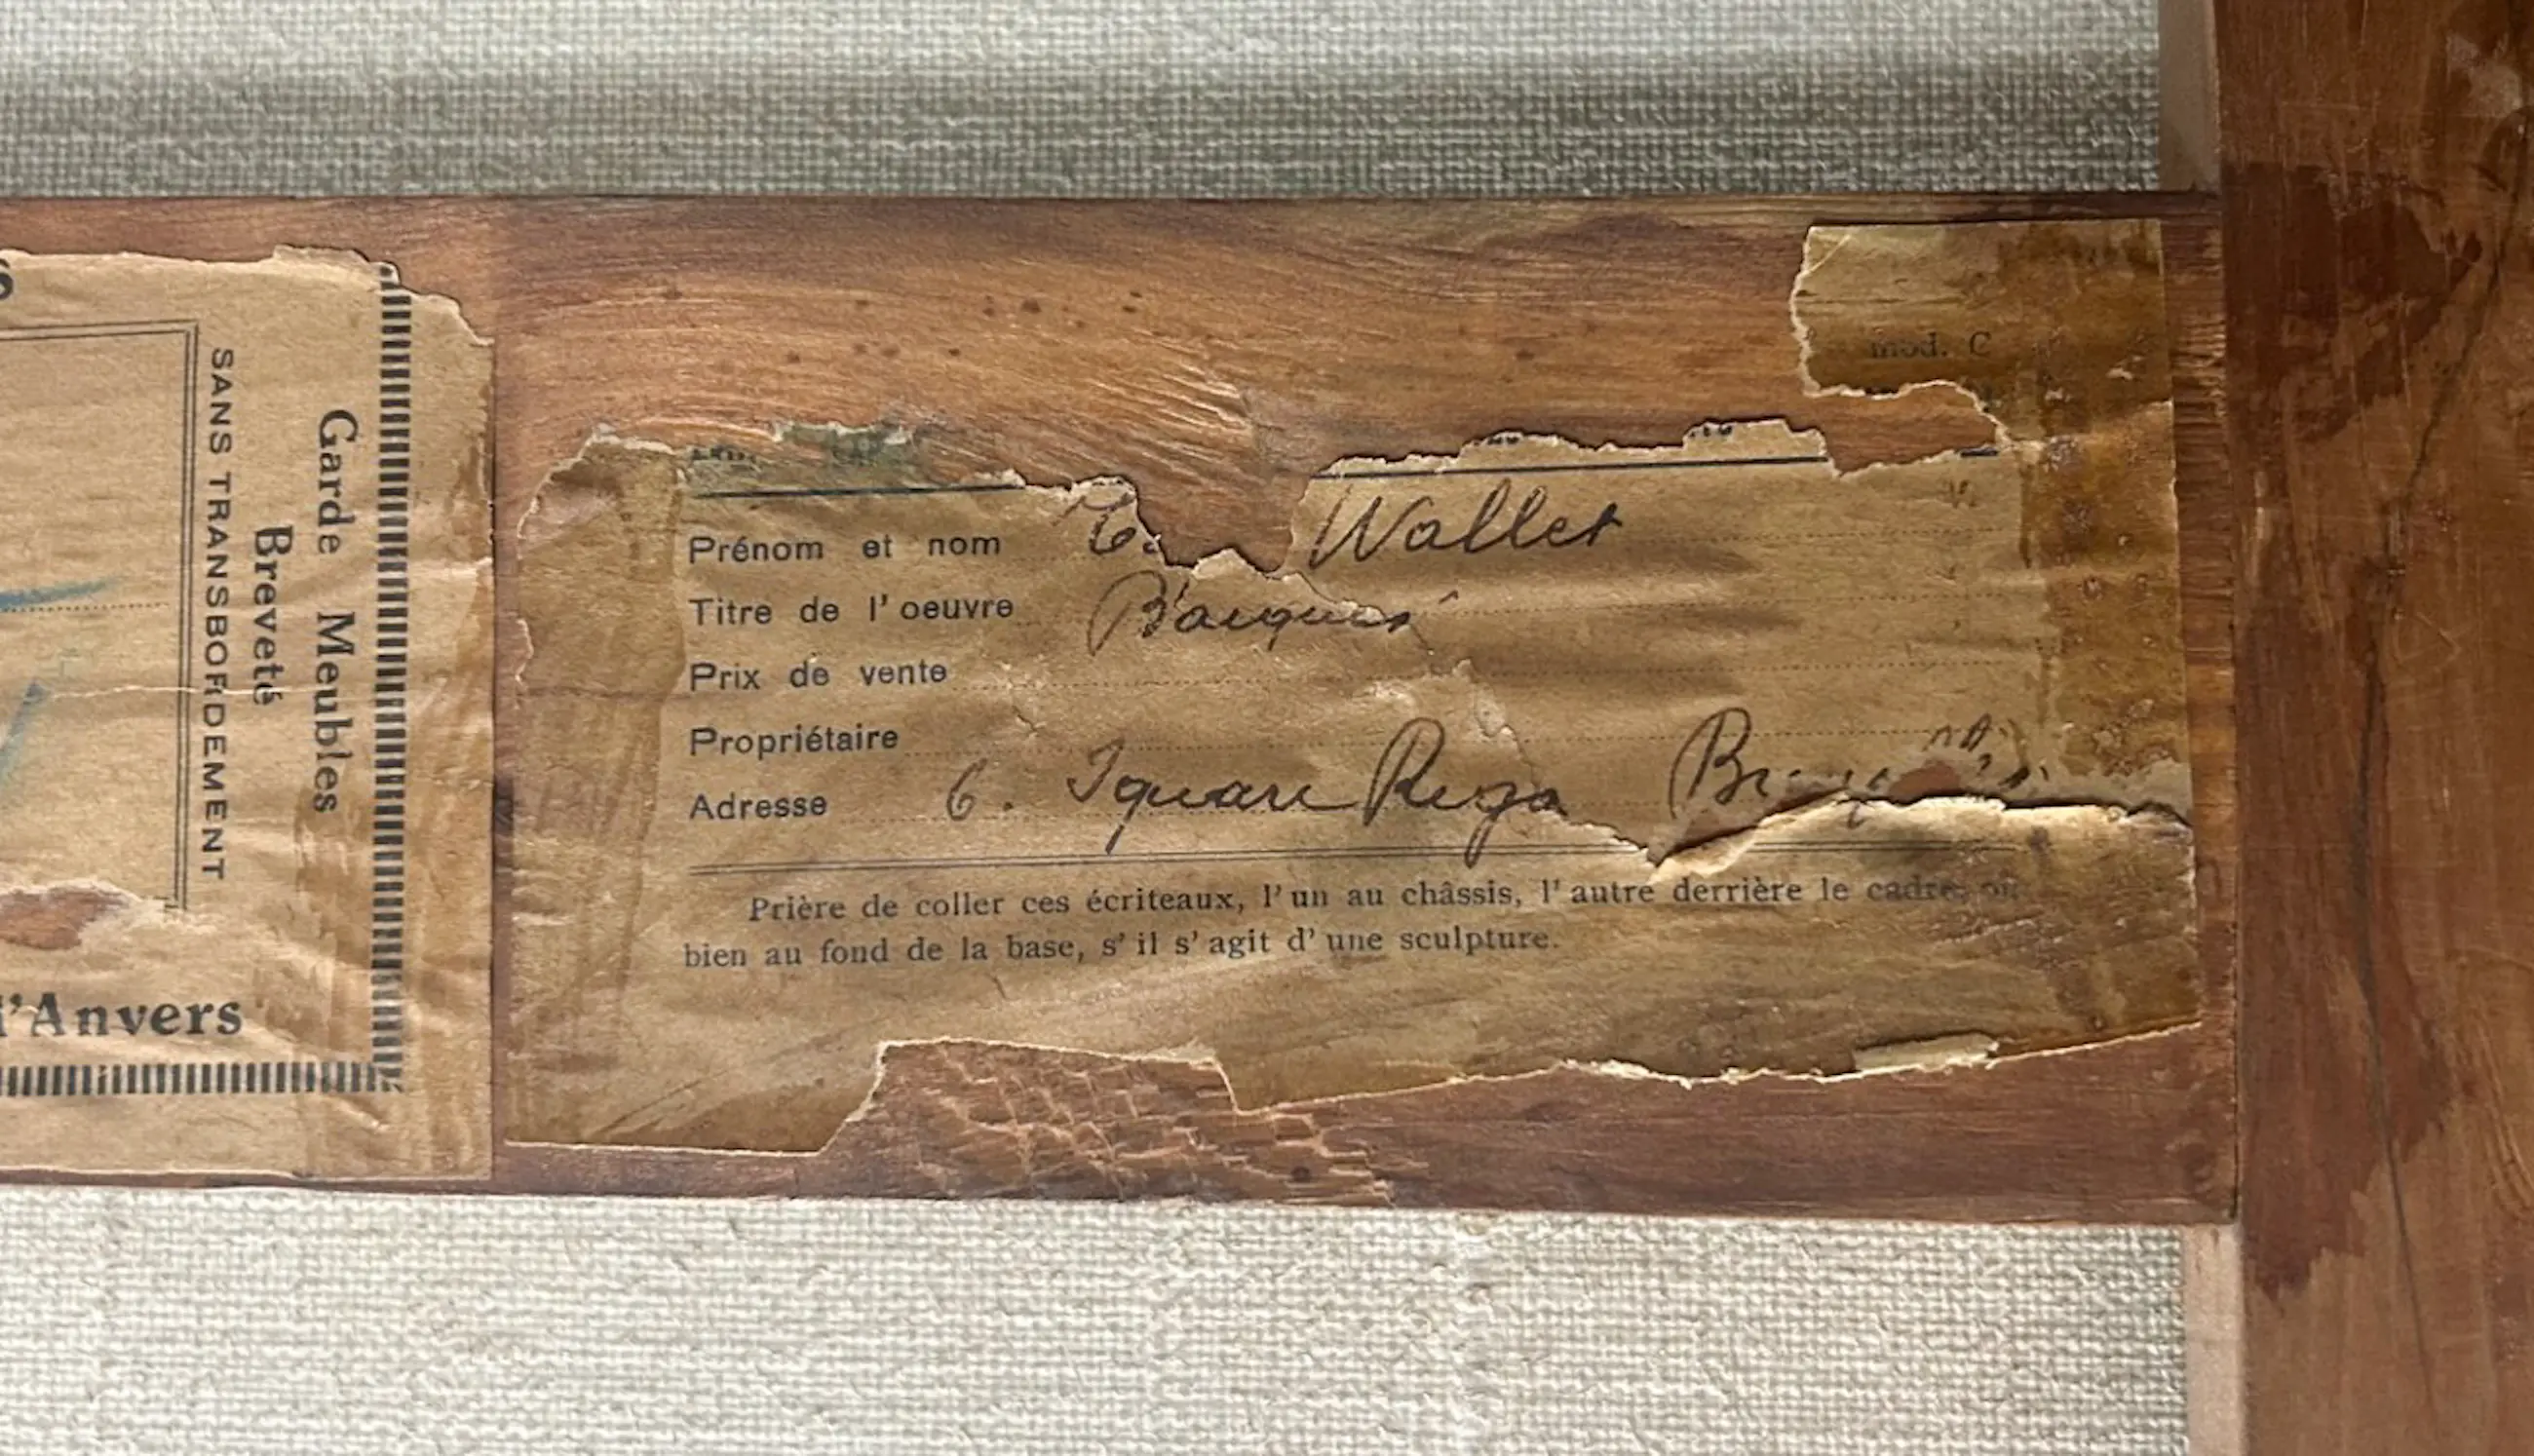 Garde Meubles
Breveté
SANS TRANSBORDEMENT
d'Anvers
mod. C
Prénom et nom Wallet
Titre de l'oeuvre Barques
Prix de vente
Propriétaire
Adresse 6. Square Riga
Prière de coller ces écriteaux, l'un au châssis, l'autre derrière le cadre, ou
bien au fond de la base, s'il s'agit d'une sculpture.